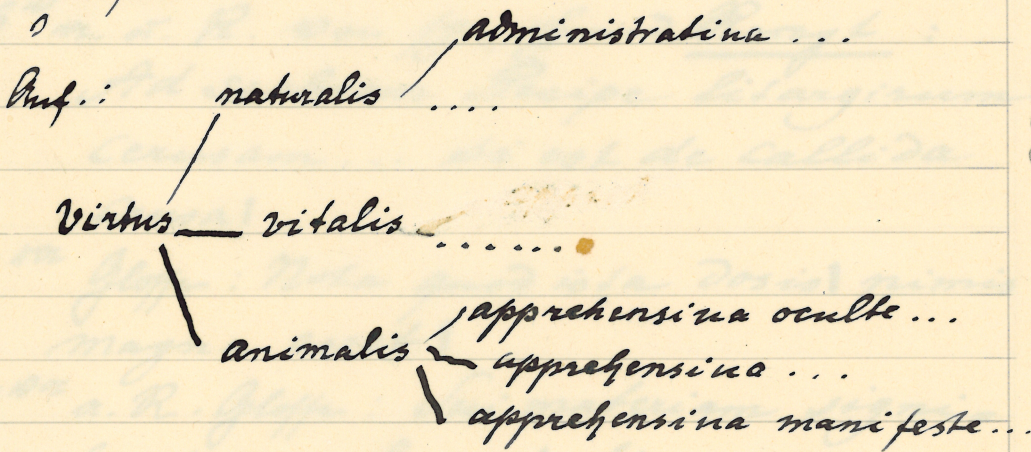 administratiua ...
Anf.: naturalis ....
virtus vitalis .......
apprehensiua oculte ...
animalis apprehensiua ...
apprehensiua manifeste...